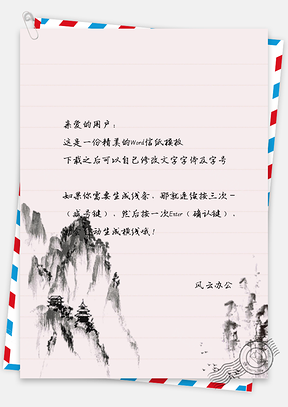 亲爱的用户：
这是一份精美的Word信纸模板
下载之后可以自己修改文字字体及字号
如果你需要生成线条，那就连续按三次-
（减号键），然后按一次Enter（确认键），
动生成横线哦！
风云办公